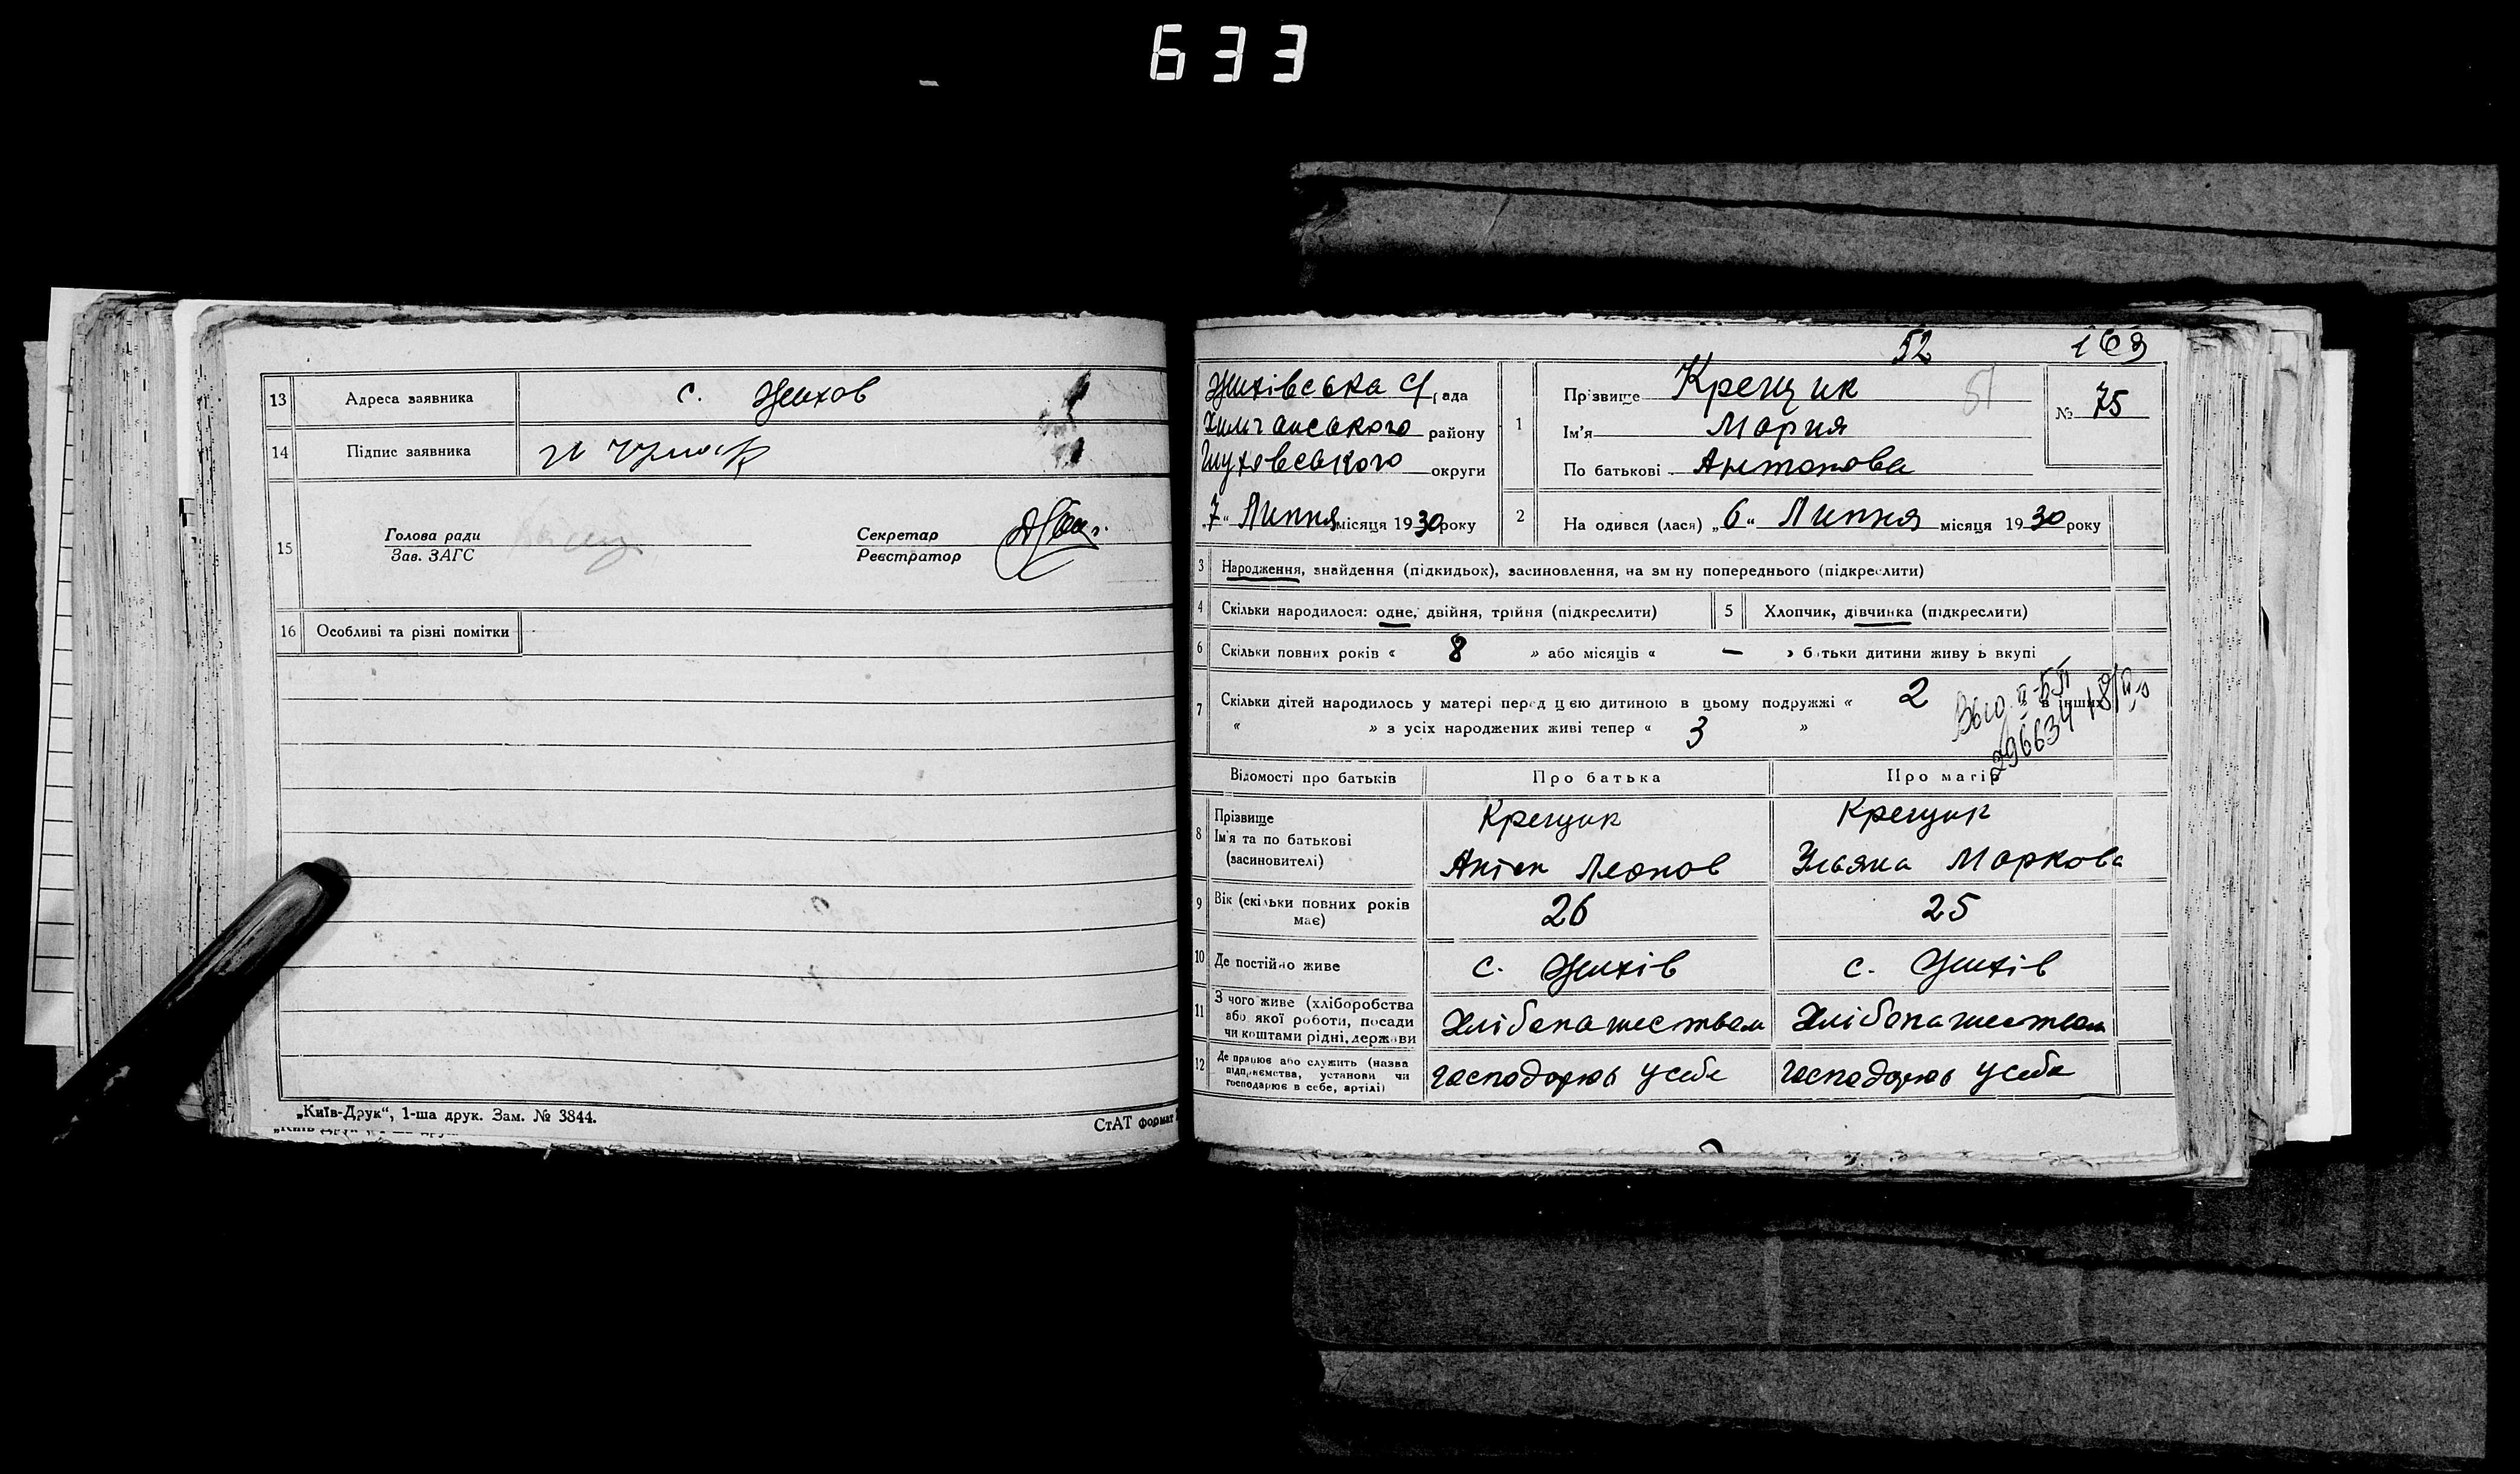 633
13 Адреса заявника с. Жихов
14 Підпис заявника
15 Голова ради Секретар
Зав. ЗАГС Реєстратор
16 Особливі та різні помітки
„Київ-Друк“, 1-ша друк. Зам. № 3844.
СтАТ формат
52 163
Жихівська с/рада
району
округи
„7“ Липня місяця 1930 року
1 Прізвище Крещик 51
Ім'я Мария
По батькові Антонова
№ 75
2 На одився (лася) „6“ Липня місяця 1930 року
3 Народження, знайдення (підкидьок), засиновлення, на зм ну попереднього (підкреслити)
4 Скільки народилося: одне, двійня, трійня (підкреслити)
5 Хлопчик, дівчинка (підкреслити)
6 Скільки повних років « 8 » або місяців « — » батьки дитини живу ь вкупі
7 Скільки дітей народилось у матері перед цією дитиною в цьому подружжі « 2 в інших
« » з усіх народжених живі тепер « 3 »
296634
Відомості про батьків Про батька Про матір
8 Прізвище Крещик Крещик
Ім'я та по батькові
(засиновителі) Антон Леонов Ульяна Маркова
9 Вік (скільки повних років має) 26 25
10 Де постійно живе с. Жихів с. Жихів
11 З чого живе (хліборобства
або якої роботи, посади
чи коштами рідні, держави Хлібопашеством Хлібопашеством
12 Де працює або служить (назва
підприємства, установи чи
господарює в себе, артілі) господарюь у себе господарюь у себе